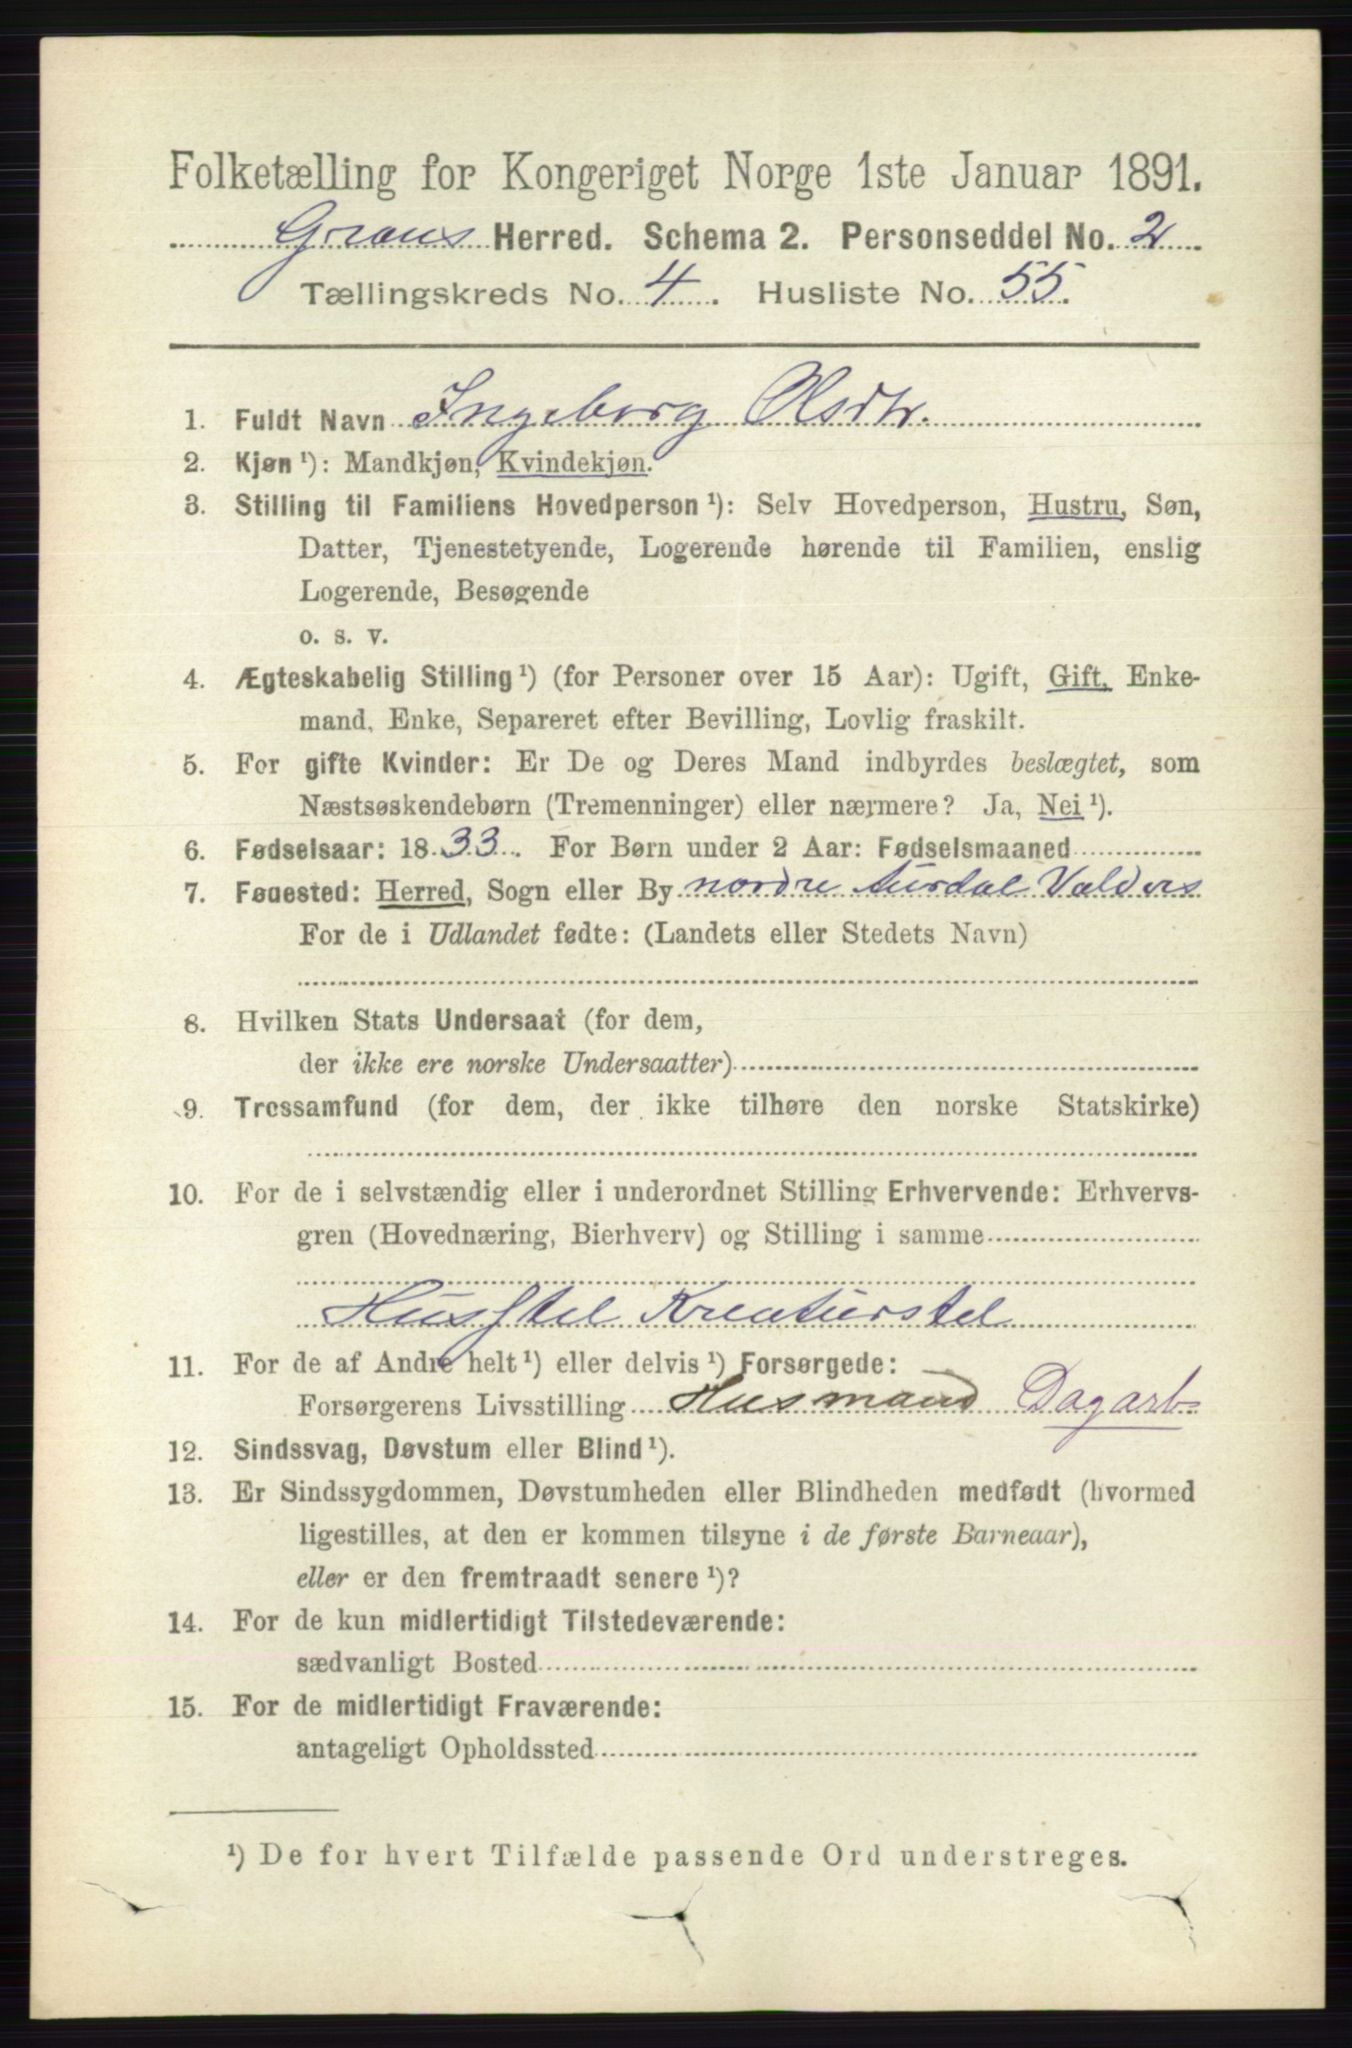 Folketælling for Kongeriget Norge 1ste Januar 1891.
Grans Herred. Schema 2. Personseddel No. 2
Tællingskreds No. 4. Husliste No. 55.
1. Fuldt Navn Ingeborg Olsdtr.
2. Kjøn ¹): Mandkjøn, Kvindekjøn.
3. Stilling til Familiens Hovedperson ¹): Selv Hovedperson, Hustru, Søn,
Datter, Tjenestetyende, Logerende hørende til Familien, enslig
Logerende, Besøgende
o. s. v.
4. Ægteskabelig Stilling ¹) (for Personer over 15 Aar): Ugift, Gift, Enke-
mand, Enke, Separeret efter Bevilling, Lovlig fraskilt.
5. For gifte Kvinder: Er De og Deres Mand indbyrdes beslægtet, som
Næstsøskendebørn (Tremenninger) eller nærmere? Ja, Nei ¹).
6. Fødselsaar: 1833. For Børn under 2 Aar: Fødselsmaaned
7. Føuested: Herred, Sogn eller By nordre Aurdal Valders
For de i Udlandet fødte: (Landets eller Stedets Navn)
8. Hvilken Stats Undersaat (for dem,
der ikke ere norske Undersaatter)
9. Trossamfund (for dem, der ikke tilhøre den norske Statskirke)
10. For de i selvstændig eller i underordnet Stilling Erhvervende: Erhvervs-
gren (Hovednæring, Bierhverv) og Stilling i samme
Husstel Kreaturstel
11. For de af Andre helt ¹) eller delvis ¹) Forsørgede:
Forsørgerens Livsstilling Husmand Dagarb
12. Sindssvag, Døvstum eller Blind ¹).
13. Er Sindssygdommen, Døvstumheden eller Blindheden medfødt (hvormed
ligestilles, at den er kommen tilsyne i de første Barneaar),
eller er den fremtraadt senere ¹)?
14. For de kun midlertidigt Tilstedeværende:
sædvanligt Bosted
15. For de midlertidigt Fraværende:
antageligt Opholdssted
¹) De for hvert Tilfælde passende Ord understreges.